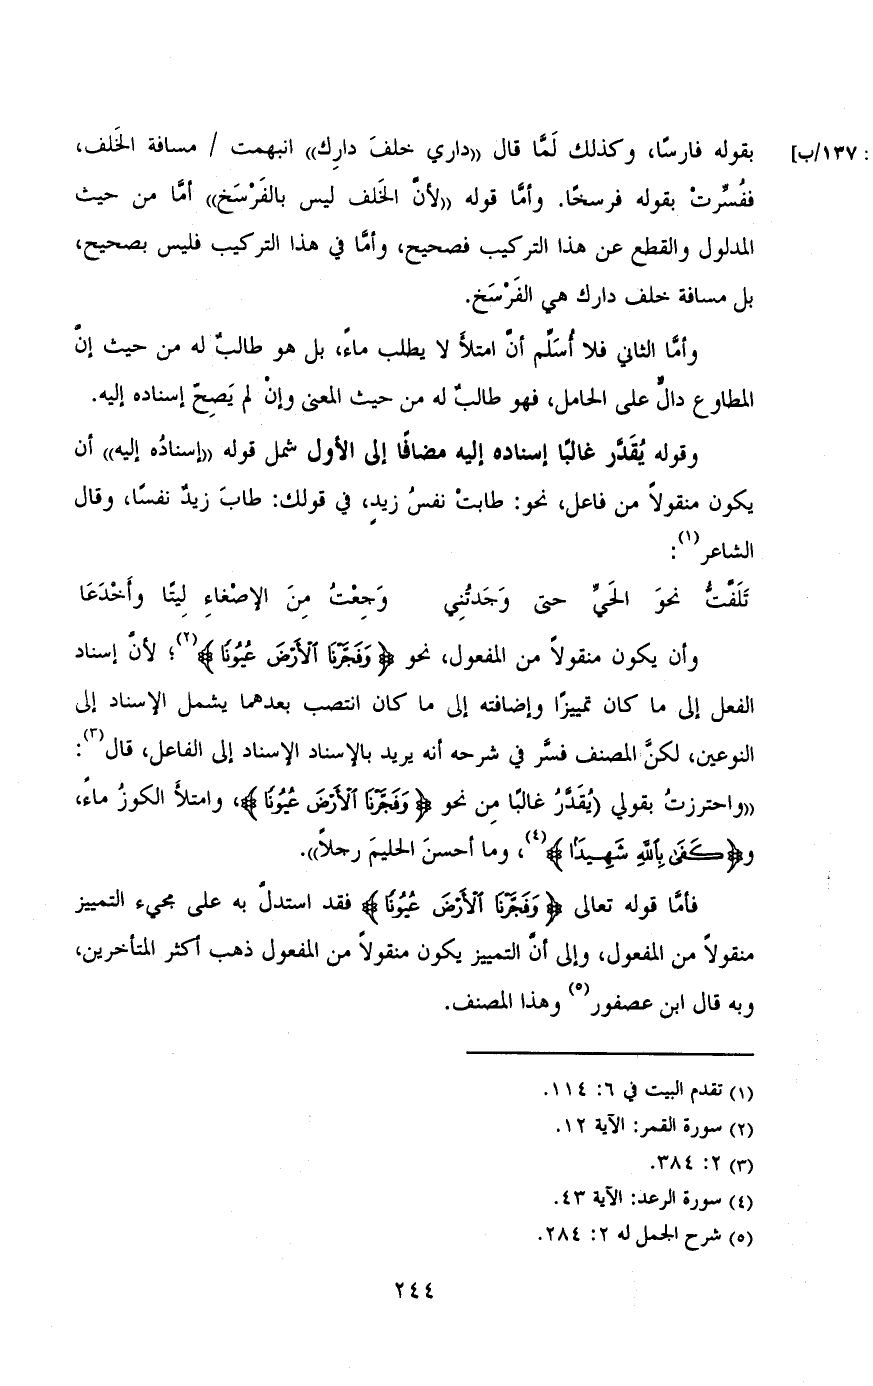 بقوله فارسًا، وكذلك لَمَّا قال ((داري خلفَ دارِك)) انبهمت / مسافة الخَلف، : ١٣٧/ب]
ففُسِّرتْ بقوله فرسخًا. وأمَّا قوله ((لأنَّ الخَلف ليس بالفَرْسَخ)) أمَّا من حيث
المدلول والقطع عن هذا التركيب فصحيح، وأمَّا في هذا التركيب فليس بصحيح،
بل مسافة خلف دارك هي الفَرْسَخ.
وأمَّا الثاني فلا أُسَلِّم أنَّ امتلأَ لا يطلب ماءً، بل هو طالبٌ له من حيث إنَّ
المطاوع دالٌّ على الحامل، فهو طالبٌ له من حيث المعنى وإنْ لم يَصِحّ إسناده إليه.
وقوله يُقَدَّر غالبًا إسناده إليه مضافًا إلى الأول شمل قوله ((إسنادُه إليه)) أن
يكون منقولاً من فاعل، نحو: طابتْ نفسُ زيدٍ، في قولك: طابَ زيدٌ نفسًا، وقال
الشاعر(١):
تَلَفَّتُّ نحوَ الحَيِّ حتى وَجَدتُنِي وَجِعْتُ مِنَ الإصْغاءِ لِيتًا وأَخْدَعَا
وأن يكون منقولاً من المفعول، نحو ﴿وَفَجَّرْنَا ٱلْأَرْضَ عُيُونًا﴾(٢)؛ لأنَّ إسناد
الفعل إلى ما كان تمييزًا وإضافته إلى ما كان انتصب بعدهما يشمل الإسناد إلى
النوعين، لكنَّ المصنف فسَّر في شرحه أنه يريد بالإسناد الإسناد إلى الفاعل، قال(٣):
((واحترزتُ بقولي (يُقَدَّرُ غالبًا مِن نحو ﴿وَفَجَّرْنَا ٱلْأَرْضَ عُيُونًا﴾، وامتلأَ الكوزُ ماءً،
و﴿كَفَىٰ بِٱللَّهِ شَهِيدًا﴾(٤)، وما أحسنَ الحليمَ رجلاً)).
فأمَّا قوله تعالى ﴿وَفَجَّرْنَا ٱلْأَرْضَ عُيُونًا﴾ فقد استدلَّ به على مجيء التمييز
منقولاً من المفعول، وإلى أنَّ التمييز يكون منقولاً من المفعول ذهب أكثر المتأخرين،
وبه قال ابن عصفور(٥) وهذا المصنف.
(١) تقدم البيت في ٦: ١١٤.
(٢) سورة القمر: الآية ١٢.
(٣) ٢: ٣٨٤.
(٤) سورة الرعد: الآية ٤٣.
(٥) شرح الجمل له ٢: ٢٨٤.
٢٤٤